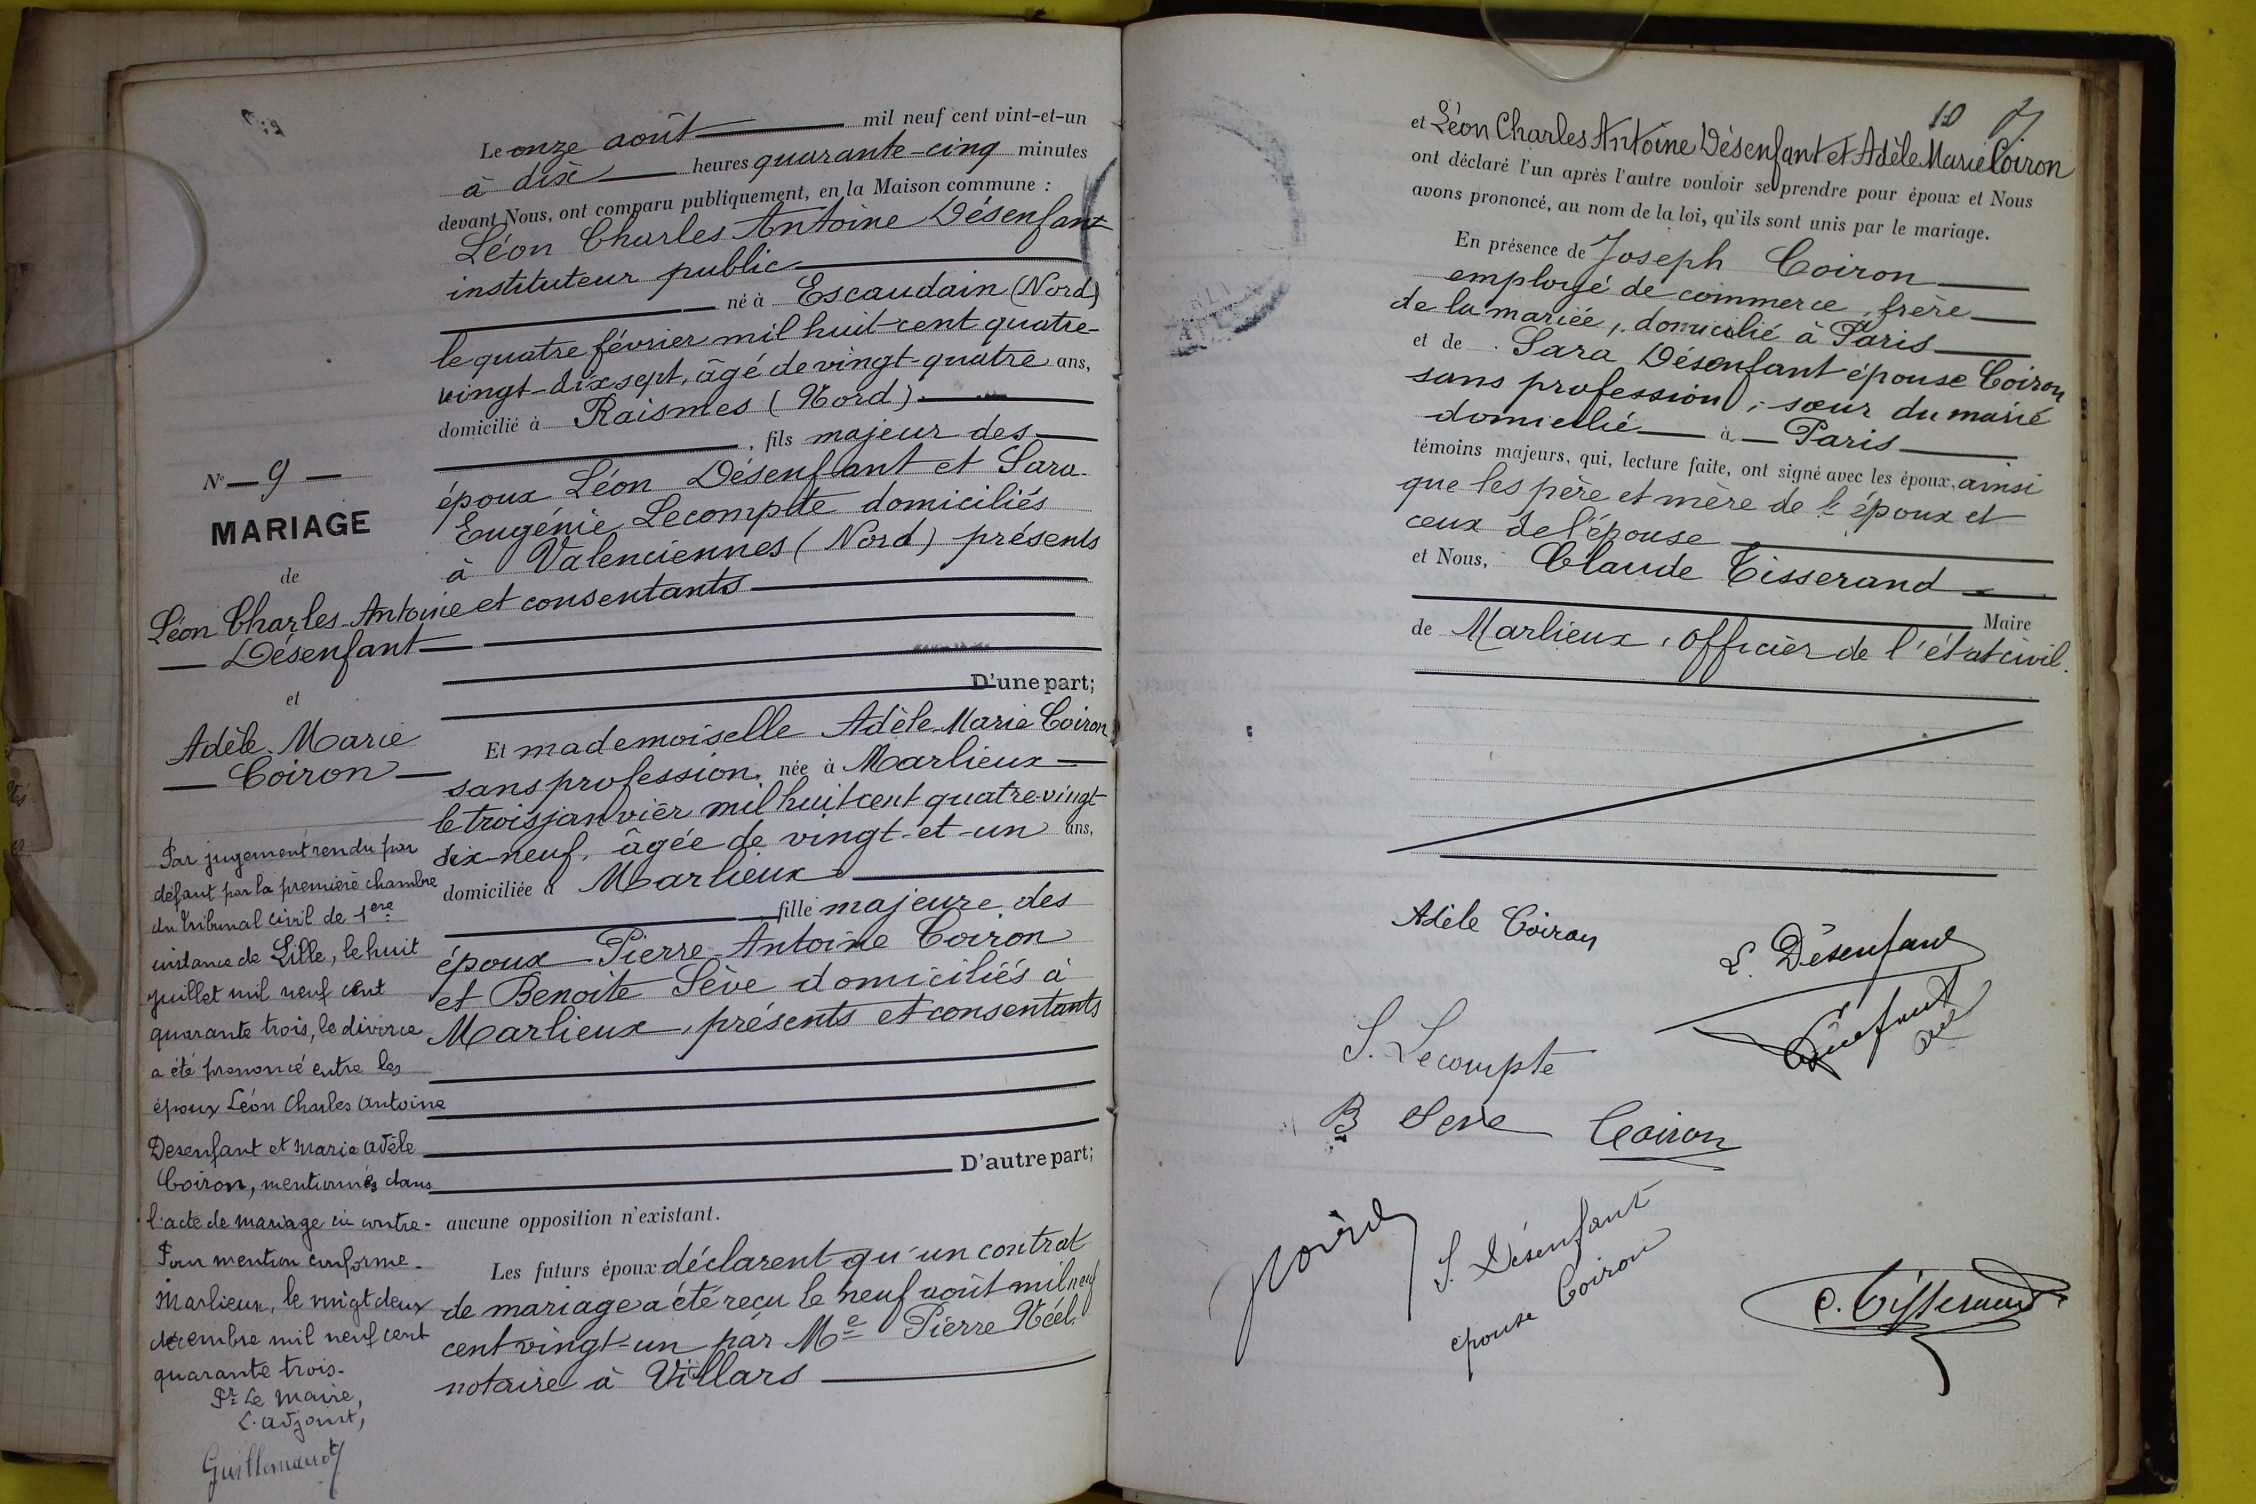 Le onze août mil neuf cent vint-et-un
à dix heures quarante-cinq minutes
devant Nous, ont comparu publiquement, en la Maison commune :
Léon Charles Antoine Désenfant
instituteur public
né à Escaudain (Nord)
le quatre février mil huit cent quatre-
vingt-dix sept, âgé de vingt-quatre ans,
domicilié à Raismes (Nord)
, fils majeur des
époux Léon Désenfant et Sara
Eugénie Lecompte domiciliés
à Valenciennes (Nord) présents
et consentants
D'une part;
Et mademoiselle Adèle Marie Coiron
sans profession, née à Marlieux
le trois janvier mil huit cent quatre-vingt
dix-neuf, âgée de vingt-et-un ans,
domiciliée à Marlieux
fille majeure des
époux Pierre Antoine Coiron
et Benoite Sève domiciliés à
Marlieux, présents et consentants
D'autre part;
aucune opposition n'existant.
Les futurs époux déclarent qu'un contrat
de mariage a été reçu le neuf août mil neuf
cent vingt-un par Me Pierre Néel
notaire à Villars
N° 9
MARIAGE
de
Léon Charles Antoine
Désenfant
et
Adèle Marie
Coiron
Par jugement rendu par
défaut par la première chambre
du tribunal civil de 1ere
instance de Lille, le huit
juillet mil neuf cent
quarante trois, le divorce
a été prononcé entre les
époux Léon Charles Antoine
Desenfant et Marie Adèle
Coiron, mentionnés dans
l'acte de mariage ci contre.
Pour mention conforme.
Marlieux, le vingt deux
décembre mil neuf cent
quarante trois.
Pr Le Maire,
L'adjoint,
Guillemaud
10
et Léon Charles Antoine Désenfant et Adèle Marie Coiron
ont déclaré l'un après l'autre vouloir se prendre pour époux et Nous
avons prononcé, au nom de la loi, qu'ils sont unis par le mariage.
En présence de Joseph Coiron
employé de commerce, frère
de la mariée, domicilié à Paris
et de Sara Désenfant épouse Coiron
sans profession, sœur du marié
domicilié à Paris
témoins majeurs, qui, lecture faite, ont signé avec les époux, ainsi
que les père et mère de l'époux et
ceux de l'épouse
et Nous, Claude Tisserand
Maire
de Marlieux, officier de l'état civil.
Adèle Coiron
L. Désenfant
S. Lecompte
B Seve
Coiron
S. Désenfant
épouse Coiron
C. Tisserand